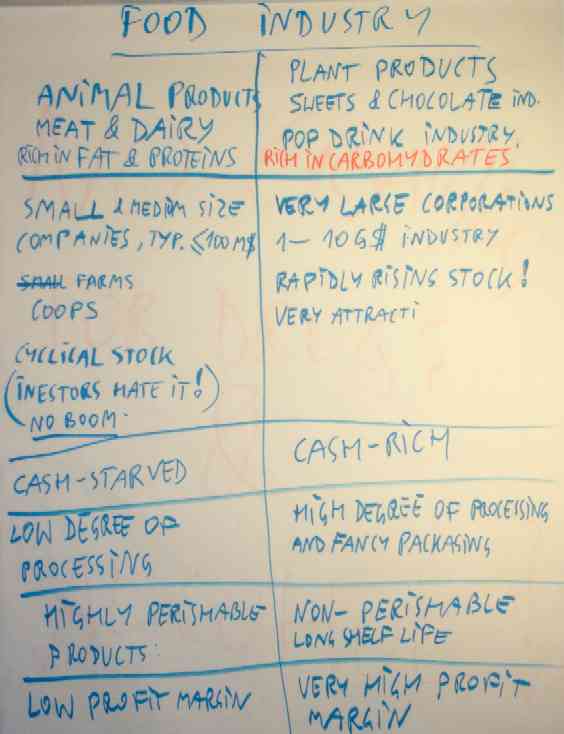 FOOD INDUSTRY
ANIMAL PRODUCTS
MEAT & DAIRY
RICH IN FAT & PROTEINS
PLANT PRODUCTS
SWEETS & CHOCOLATE IND.
POP DRINK INDUSTRY.
RICH IN CARBOHYDRATES
SMALL & MEDIUM SIZE
COMPANIES, TYP. ≤100M$
SMALL FARMS
COOPS
CYCLICAL STOCK
(INESTORS HATE IT!)
NO BOOM.
VERY LARGE CORPORATIONS
1-10G$ INDUSTRY
RAPIDLY RISING STOCK!
VERY ATTRACTI
CASH-STARVED
CASH-RICH
LOW DEGREE OF
PROCESSING
HIGH DEGREE OF PROCESSING
AND FANCY PACKAGING
HIGHLY PERISHABLE
PRODUCTS:
NON-PERISHABLE
LONG SHELF LIFE
LOW PROFIT MARGIN
VERY HIGH PROFIT
MARGIN